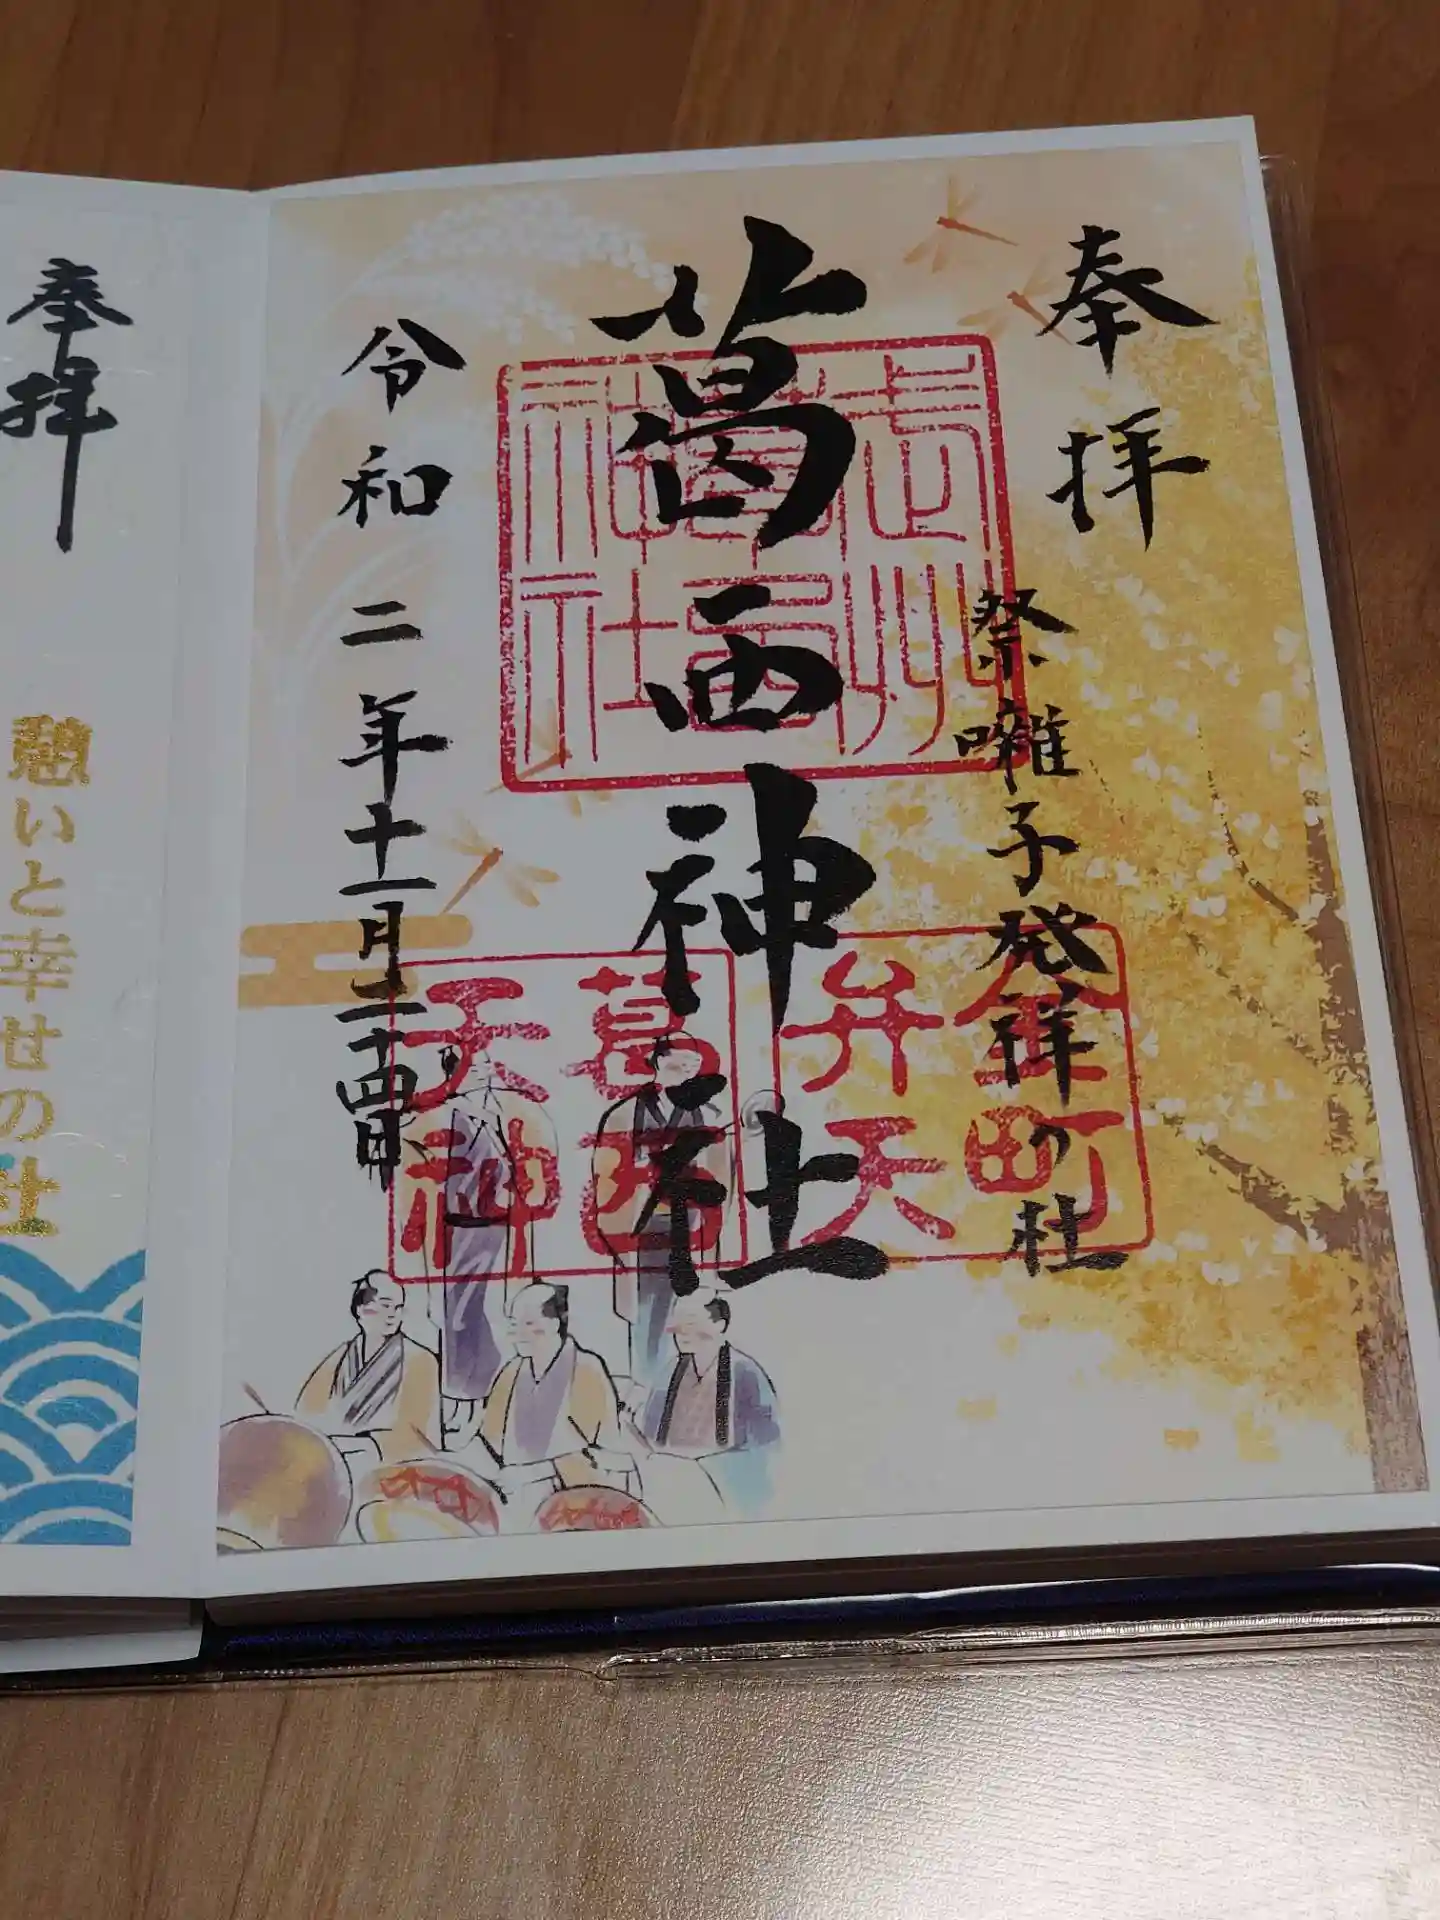 奉拝
祭囃子発祥の社
葛西神社
令和二年十一月二十四日
武州
葛西
神社
金町
弁天
葛西
天神
奉拝
憩いと幸せの社